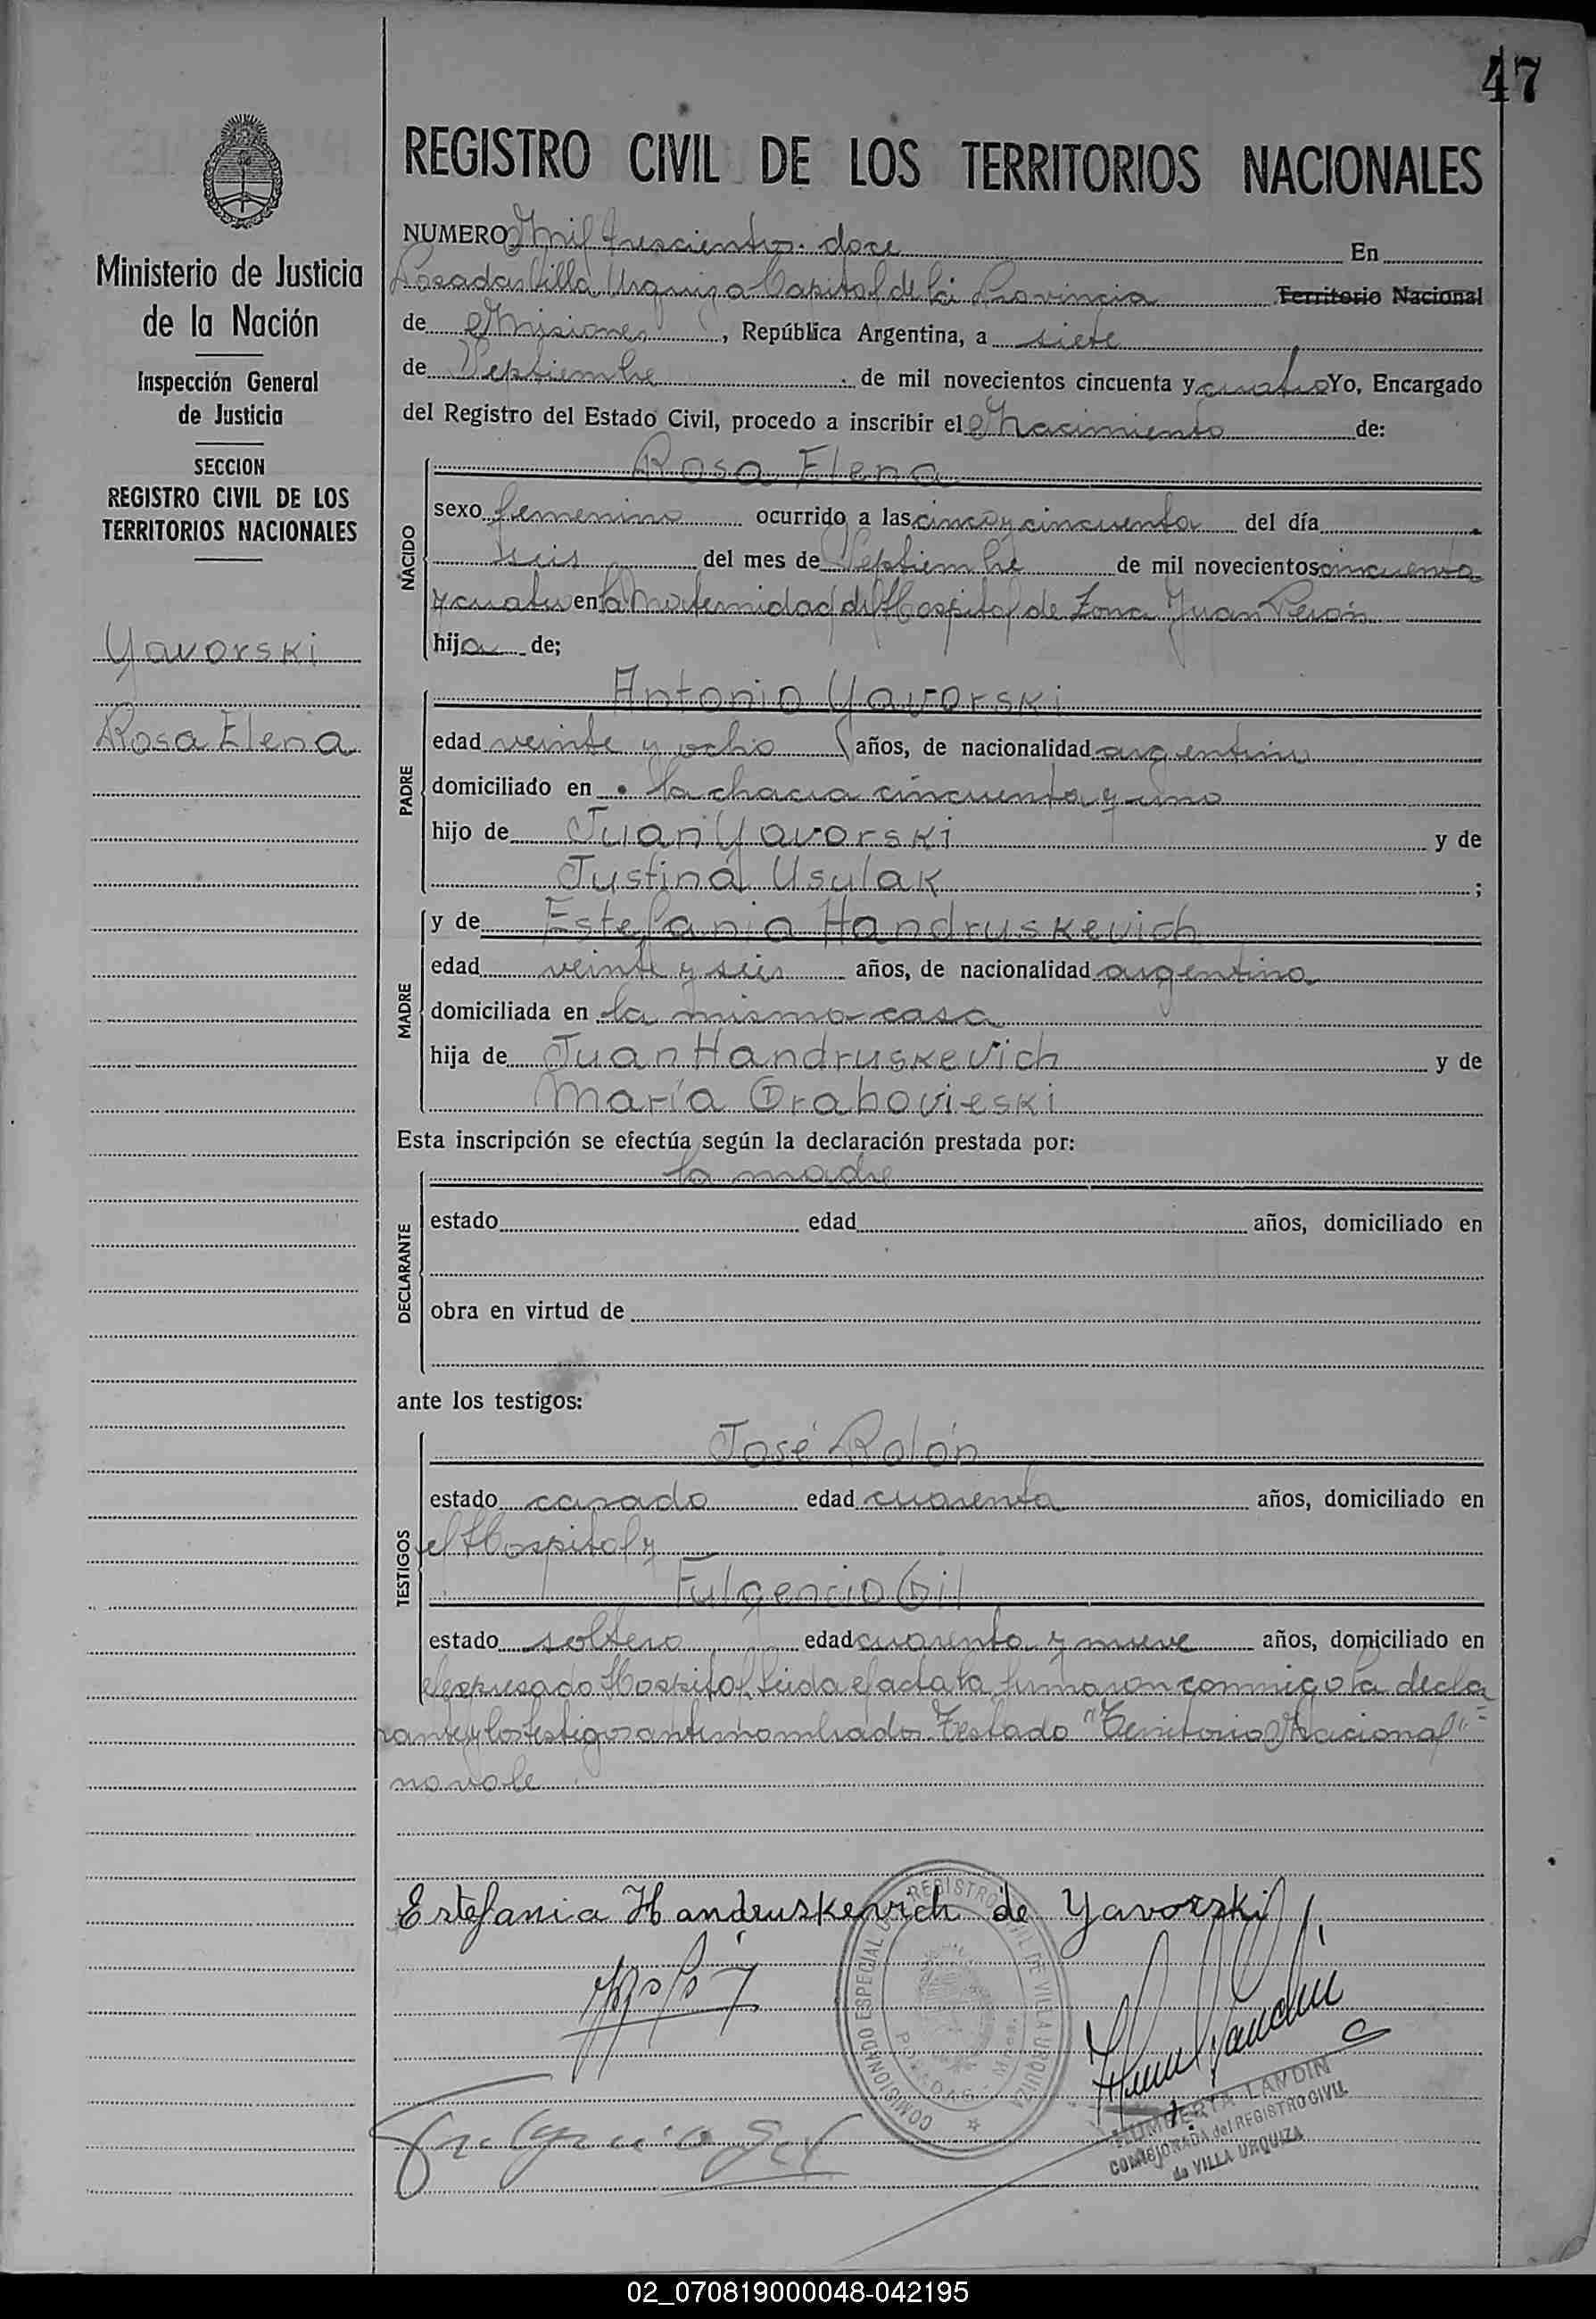 47
REGISTRO CIVIL DE LOS TERRITORIOS NACIONALES
Ministerio de Justicia
de la Nación
Inspección General
de Justicia
SECCION
REGISTRO CIVIL DE LOS
TERRITORIOS NACIONALES
Yavorski
Rosa Elena
NUMERO Mil trescientos doce En
Posadas Villa Urquiza Capital de la Provincia Territorio Nacional
de Misiones, República Argentina, a siete
de Septiembre de mil novecientos cincuenta y cuatro Yo, Encargado
del Registro del Estado Civil, procedo a inscribir el Nacimiento de:
NACIDO
Rosa Elena
sexo femenino ocurrido a las cinco y cincuenta del día
seis del mes de Septiembre de mil novecientos cincuenta
y cuatro en la Maternidad del Hospital de Zona Juan Perón
hija de;
PADRE
Antonio Yavorski
edad veinte y ocho años, de nacionalidad argentino
domiciliado en la chacra cincuenta y uno
hijo de Juan Yavorski y de
Justina Usulak ;
MADRE
y de Estefania Handruskevich
edad veinte y seis años, de nacionalidad argentina
domiciliada en la misma casa
hija de Juan Handruskevich y de
María Grabovieski
Esta inscripción se efectúa según la declaración prestada por:
DECLARANTE
la madre
estado edad años, domiciliado en
obra en virtud de
ante los testigos:
TESTIGOS
José Rolón
estado casado edad cuarenta años, domiciliado en
el Hospital y
Fulgencio Gil
estado soltero edad cuarenta y nueve años, domiciliado en
el expresado Hospital, leida el acta la firmaron conmigo la decla
rante y los testigos antes nombrados. Testado "Territorio Nacional"
no vale
Estefania Handruskevich de Yavorski
Fulgencio Gil
COMISIONADO ESPECIAL REGISTRO CIVIL DE VILLA URQUIZA
POSADAS
HUMBERTA LANDIN
COMISIONADA del REGISTRO CIVIL
de VILLA URQUIZA
02_070819000048-042195